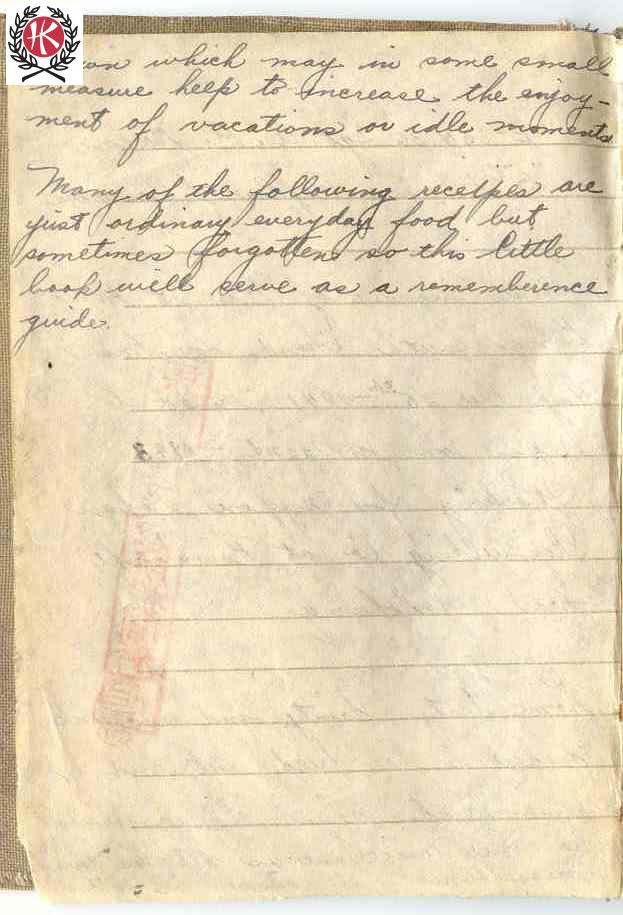 HK
which may in some small
measure help to increase the enjoy-
ment of vacations or idle moments
Many of the following receipes are
just ordinary everyday food but
sometimes forgotten so this little
book will serve as a rememberence
guide.